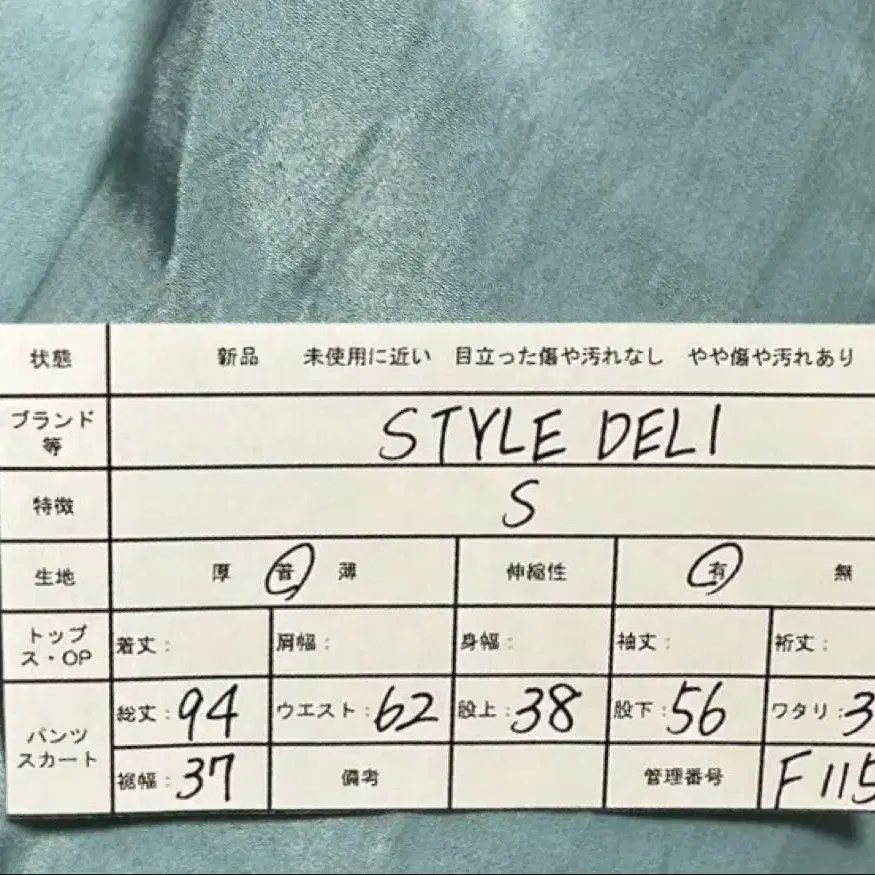 状態 新品 未使用に近い 目立った傷や汚れなし やや傷や汚れあり
ブランド等 STYLE DELI
特徴 S
生地 厚 普 薄 伸縮性 有 無
トップス・OP 着丈: 肩幅: 身幅: 袖丈: 裄丈:
パンツ スカート 総丈:94 ウエスト:62 股上:38 股下:56 ワタリ:3
裾幅:37 備考 管理番号 F115